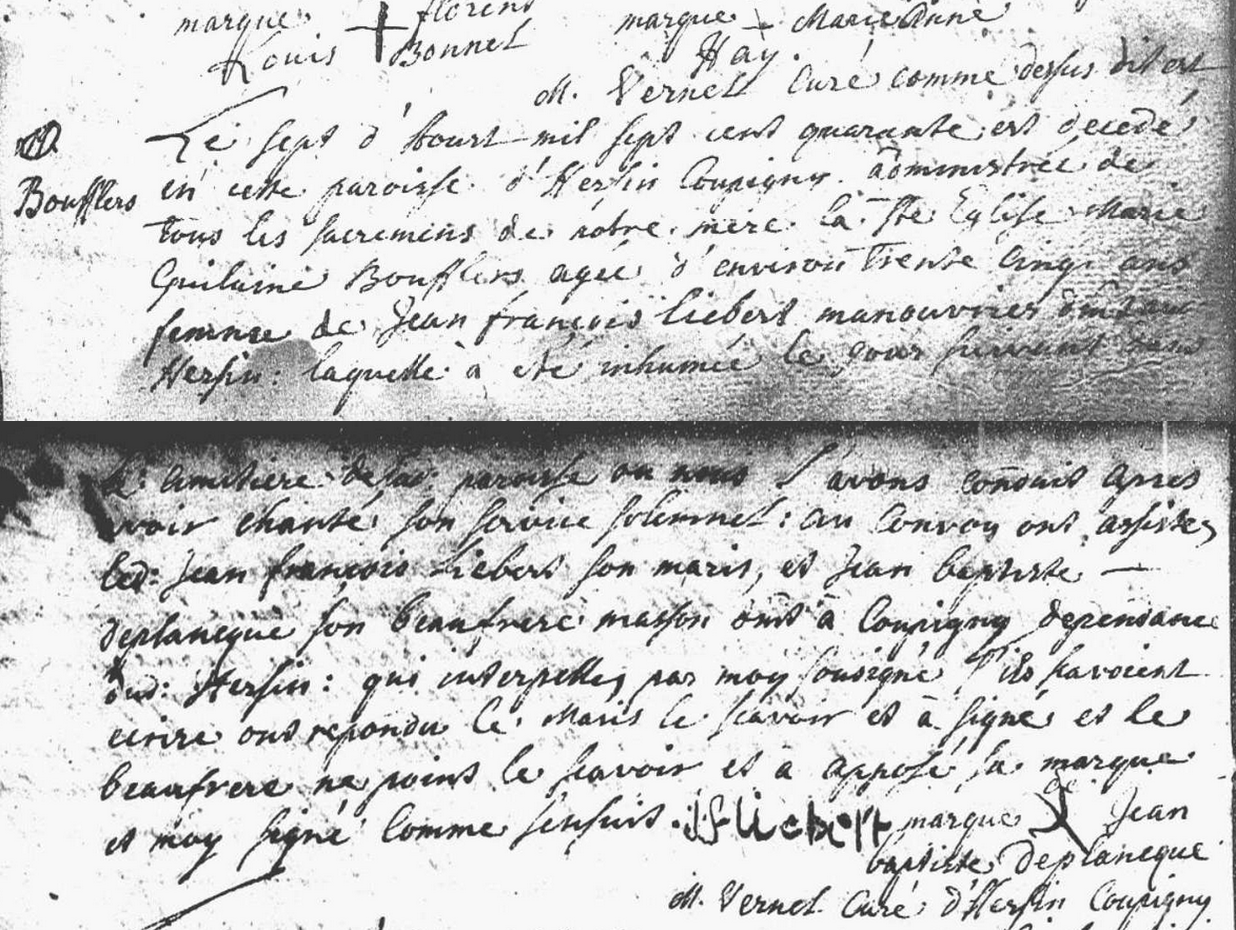 marque + florens
Louis Bonnel
marque Marie Anne
Hay
M. Vernel Curé comme dessus dit est
Boufflers
Le sept d'Aoust mil sept cent quarante est decedé
en cette paroisse d'Hersin Coupigny administrée de
tous les sacremens de nôtre mere la Ste Eglise Marie
Guilaine Boufflers agée d'environ Trente Cinq ans
femme de Jean françois Liebert manouvrier
Hersin: laquelle à eté inhumée le jour suivant dans
le cimitiere de lad: paroisse ou nous l'avons conduit apres
avoir chanté son service solemnel: au Convoy ont assistez
led: Jean françois Liebert son maris, et Jean baptiste —
deplancque son beaufrere masson dmt à Coupigny dependance
dud: Hersin: qui interpellez par moy sousigné s'ils savoient
ecrire ont repondu le Maris le scavoir et à signé et le
beaufrere ne point le scavoir et a apposé sa marque
et moy signé Comme sensuit. JF liebert marque de Jean
baptiste Deplancque
M. Vernel Curé d'Hersin Coupigny